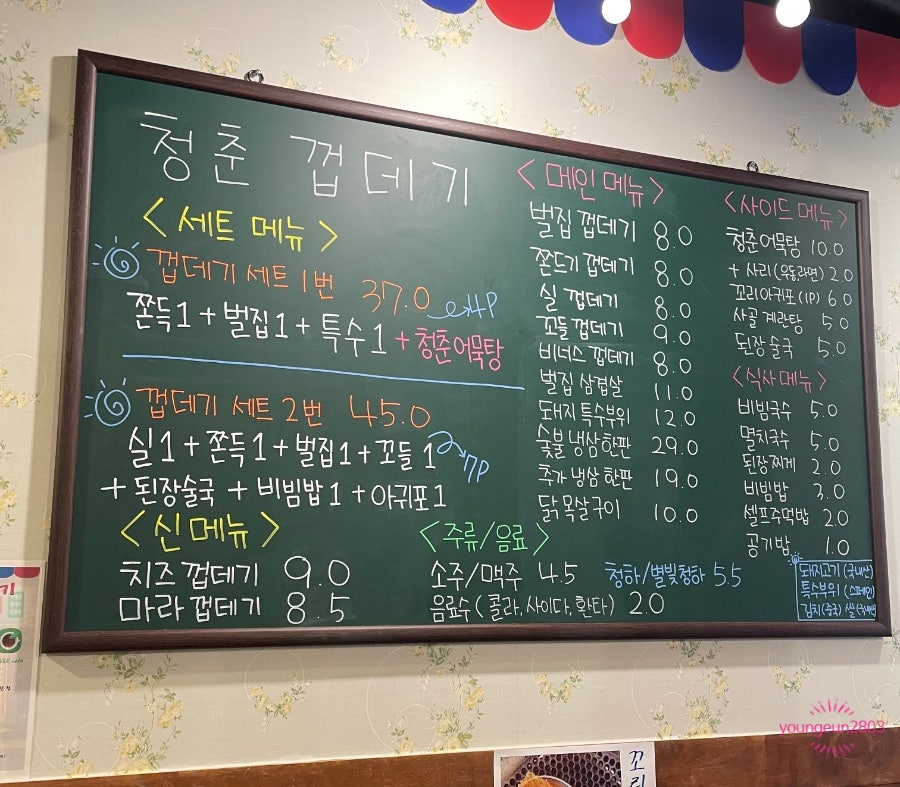 청춘 껍데기
<세트 메뉴>
껍데기 세트 1번 37.0 4P
쫀득1 + 벌집1 + 특수1 + 청춘어묵탕
껍데기 세트 2번 45.0
실1 + 쫀득1 + 벌집1 + 꼬들1 7P
+ 된장술국 + 비빔밥1 + 아귀포1
<신 메뉴>
치즈 껍데기 9.0
마라 껍데기 8.5
<메인 메뉴>
벌집 껍데기 8.0
쫀드기 껍데기 8.0
실 껍데기 8.0
꼬들 껍데기 9.0
비너스 껍데기 8.0
벌집 삼겹살 11.0
돼지 특수부위 12.0
숯불 냉삼 한판 29.0
추가 냉삼 한판 19.0
닭 목살구이 10.0
<사이드 메뉴>
청춘어묵탕 10.0
+ 사리(우동,라면) 2.0
꼬리아귀포(1P) 6.0
사골 계란탕 5.0
된장 술국 5.0
<식사 메뉴>
비빔국수 5.0
멸치국수 5.0
된장찌게 2.0
비빔밥 3.0
셀프주먹밥 2.0
공기밥 1.0
<주류/음료>
소주/맥주 4.5 청하/별빛청하 5.5
음료수 (콜라, 사이다, 환타) 2.0
돼지고기 (국내산)
특수부위 (스페인)
김치(중국) 쌀(국내산)
youngeun2803
꼬리